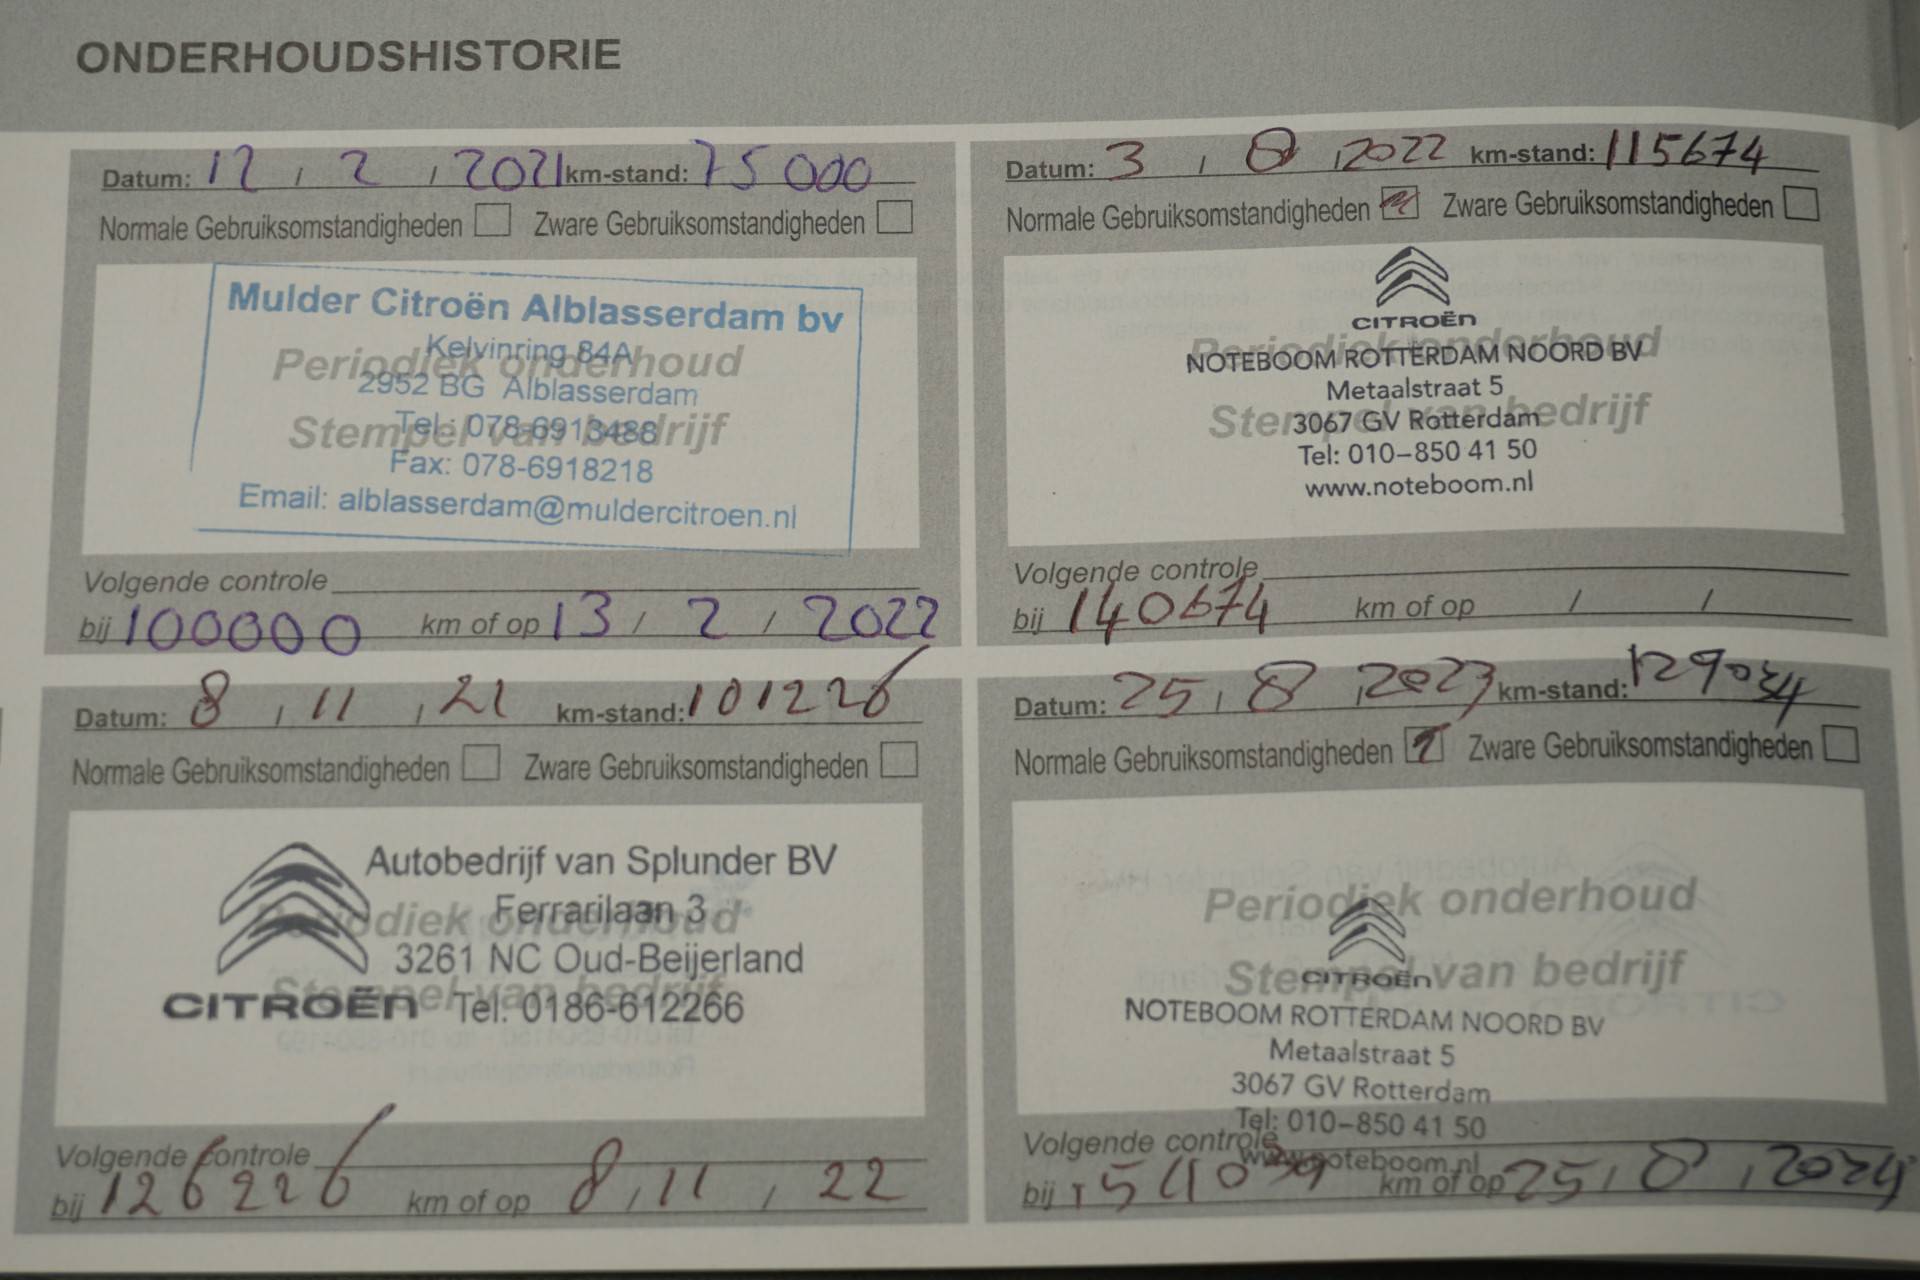 ONDERHOUDSHISTORIE
Datum: 12 / 2 / 2021 km-stand: 75000
Normale Gebruiksomstandigheden Zware Gebruiksomstandigheden
Periodiek onderhoud
Stempel van bedrijf
Mulder Citroën Alblasserdam bv
Kelvinring 84A
2952 BG Alblasserdam
Tel.: 078-6913488
Fax: 078-6918218
Email: alblasserdam@muldercitroen.nl
Volgende controle
bij 100000 km of op 13 / 2 / 2022
Datum: 8 / 11 / 21 km-stand: 101226
Normale Gebruiksomstandigheden Zware Gebruiksomstandigheden
Periodiek onderhoud
Stempel van bedrijf
Autobedrijf van Splunder BV
Ferrarilaan 3
3261 NC Oud-Beijerland
CITROËN Tel: 0186-612266
Volgende controle
bij 126226 km of op 8 / 11 / 22
Datum: 3 / 8 / 2022 km-stand: 115674
Normale Gebruiksomstandigheden Zware Gebruiksomstandigheden
CITROËN
Periodiek onderhoud
Stempel van bedrijf
NOTEBOOM ROTTERDAM NOORD BV
Metaalstraat 5
3067 GV Rotterdam
Tel: 010-850 41 50
www.noteboom.nl
Volgende controle
bij 140674 km of op / /
Datum: 25 / 8 / 2023 km-stand: 129034
Normale Gebruiksomstandigheden Zware Gebruiksomstandigheden
Periodiek onderhoud
Stempel van bedrijf
CITROËN
NOTEBOOM ROTTERDAM NOORD BV
Metaalstraat 5
3067 GV Rotterdam
Tel: 010-850 41 50
www.noteboom.nl
Volgende controle
bij km of op 25 / 8 / 2024